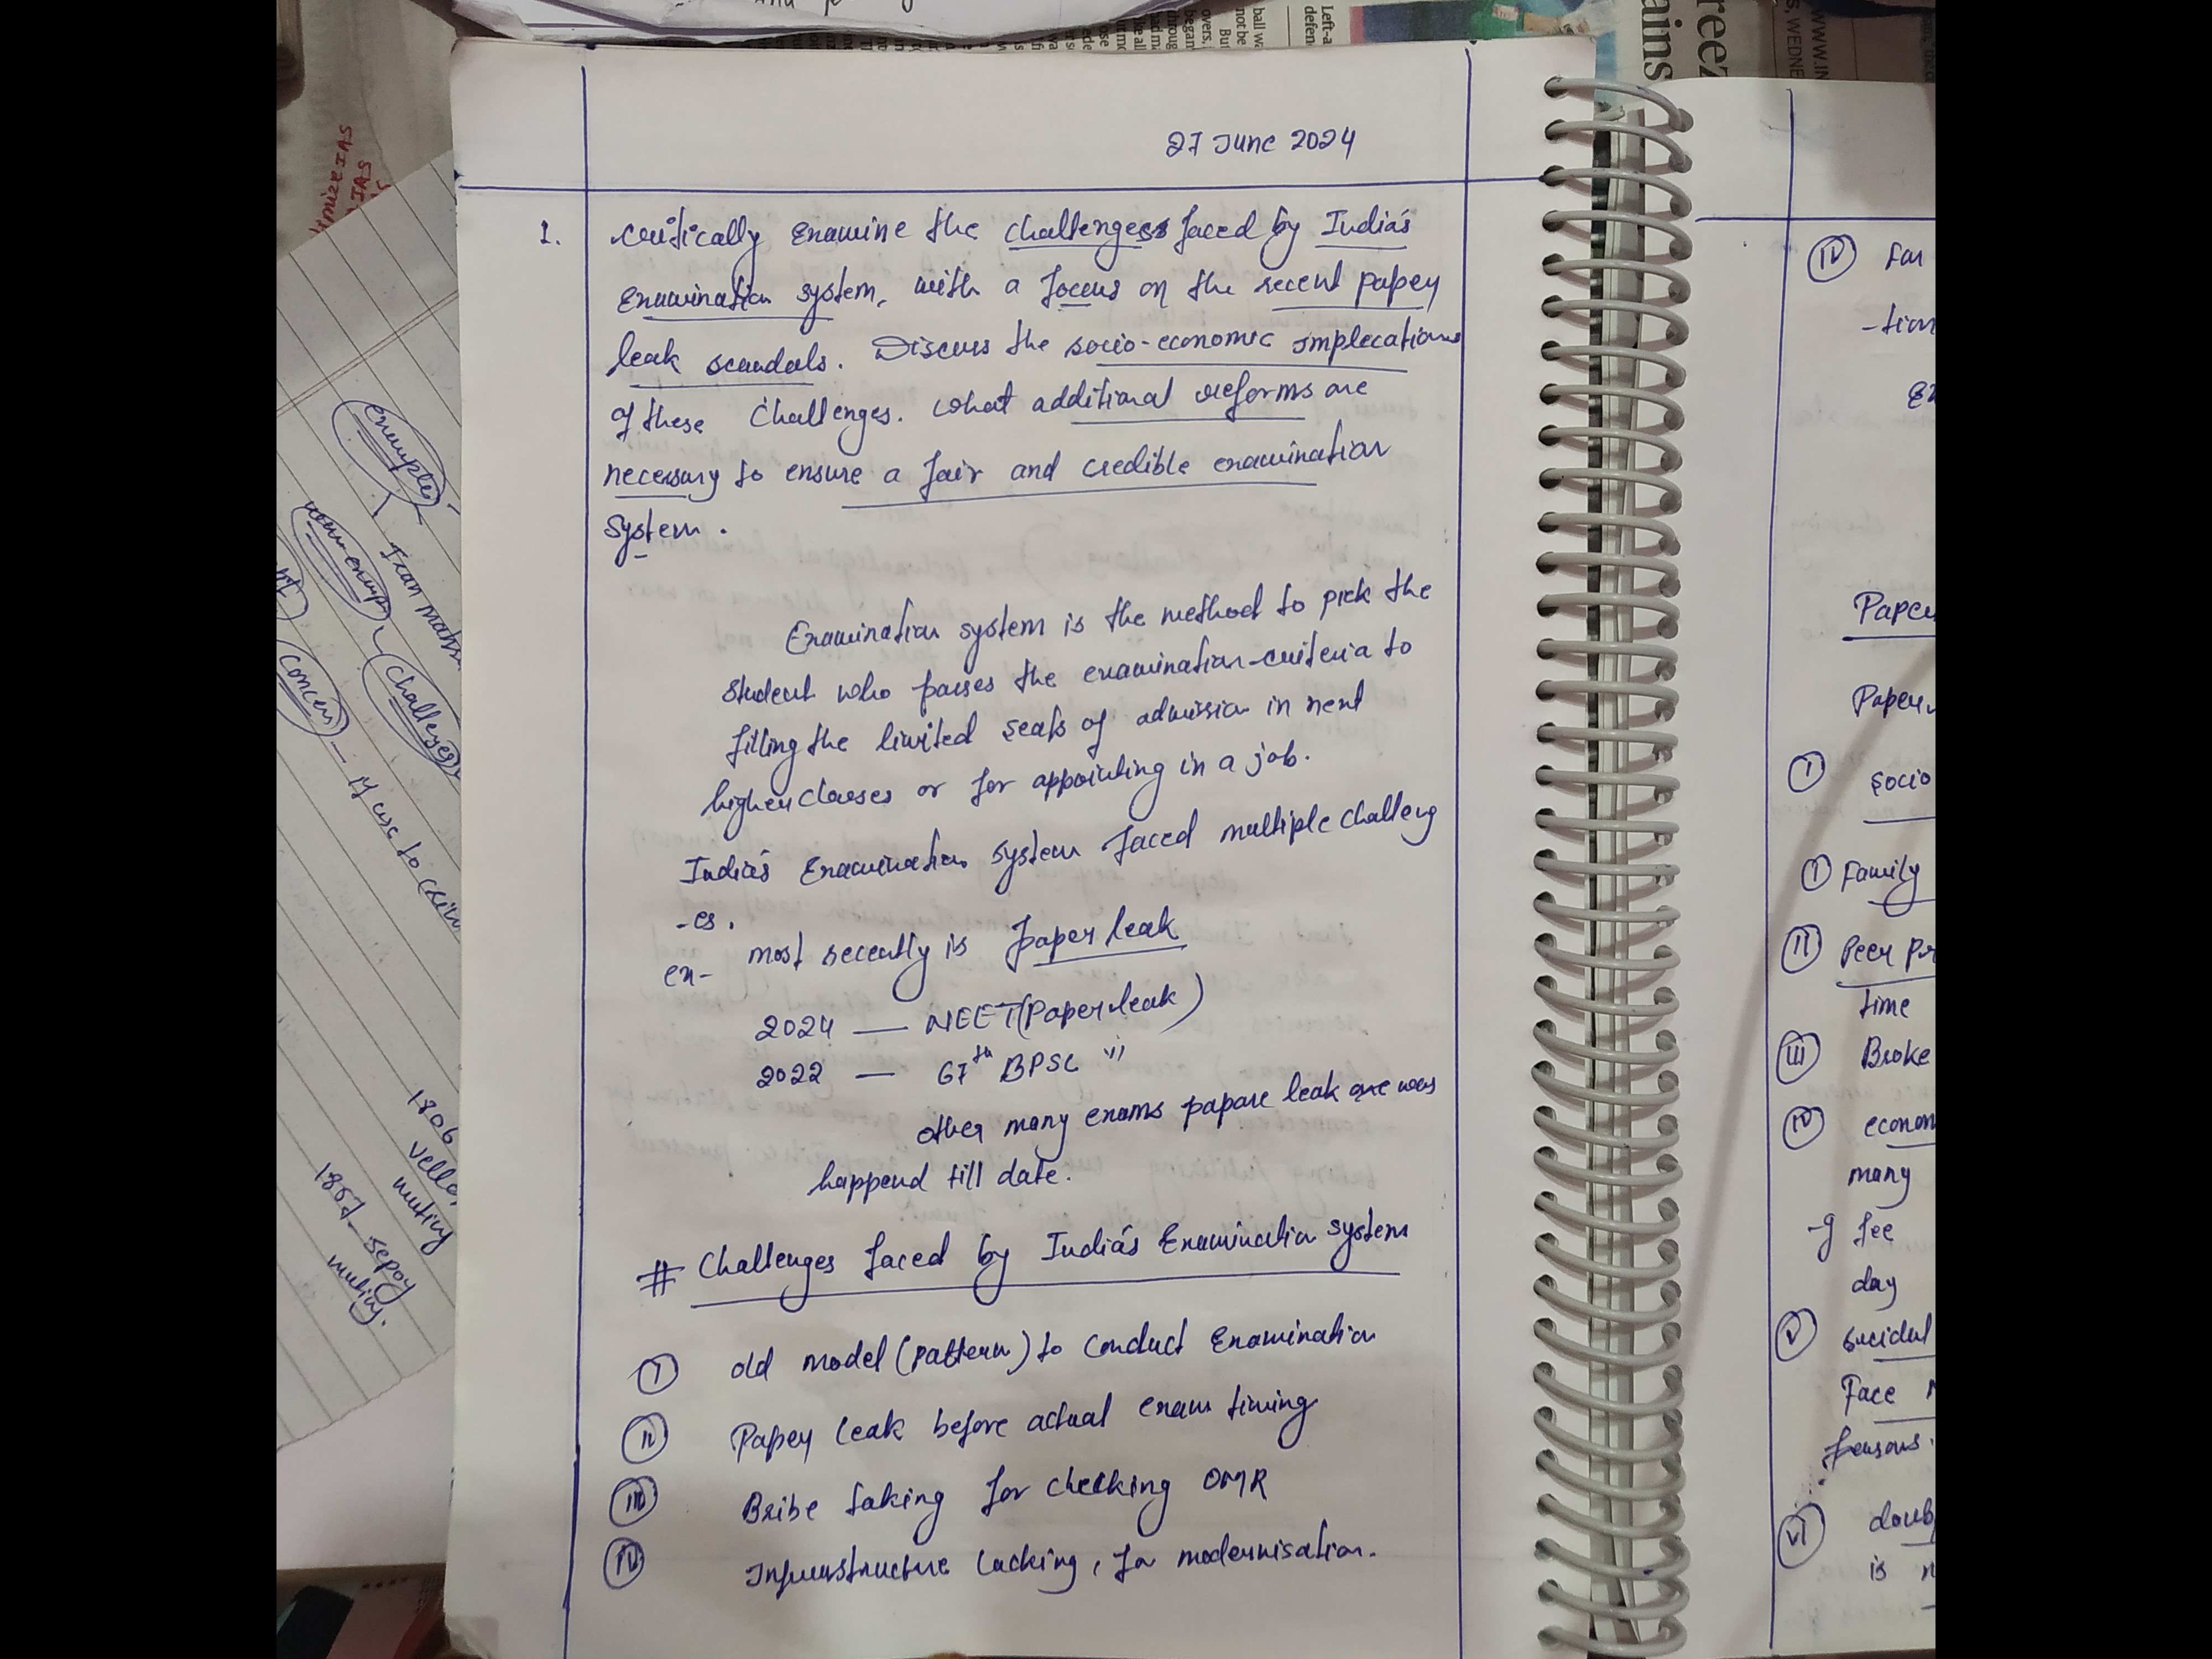 27 June 2024
1. critically examine the challenges faced by India's
Examination system, with a focus on the recent paper
leak scandals. Discuss the socio-economic implecations
of these challenges. What additional reforms are
necessary to ensure a fair and credible examination
system.
Examination system is the method to pick the
student who passes the examination-criteria to
filling the limited seats of admission in next
higher classes or for appointing in a job.
India's Examination system faced multiple challeng
-es.
ex- most recently is Paper leak
2024 — NEET (Paper leak)
2022 — 67th BPSC "
other many exams papare leak was
happend till date.
# Challenges faced by India's Examination system
I old model (pattern) to conduct Examination
II Paper leak before actual exam timing
III Bribe taking for checking OMR
IV Infrastructure lacking, for modernisation.
IV far
-tion
Ex
Paper
Paper
I socio
I Family
II Peer pr
time
III Broke
IV econom
many
-g fee
day
V suicidal
Face
VI doub
is n
examples
Challenges
1806
vello
mutiny
1857 - sepoy
mutiny.
Left-a
defen
ball wa
not be
But
overs.
began
throug
ains
reez
WWW.IN
S, WEDNE